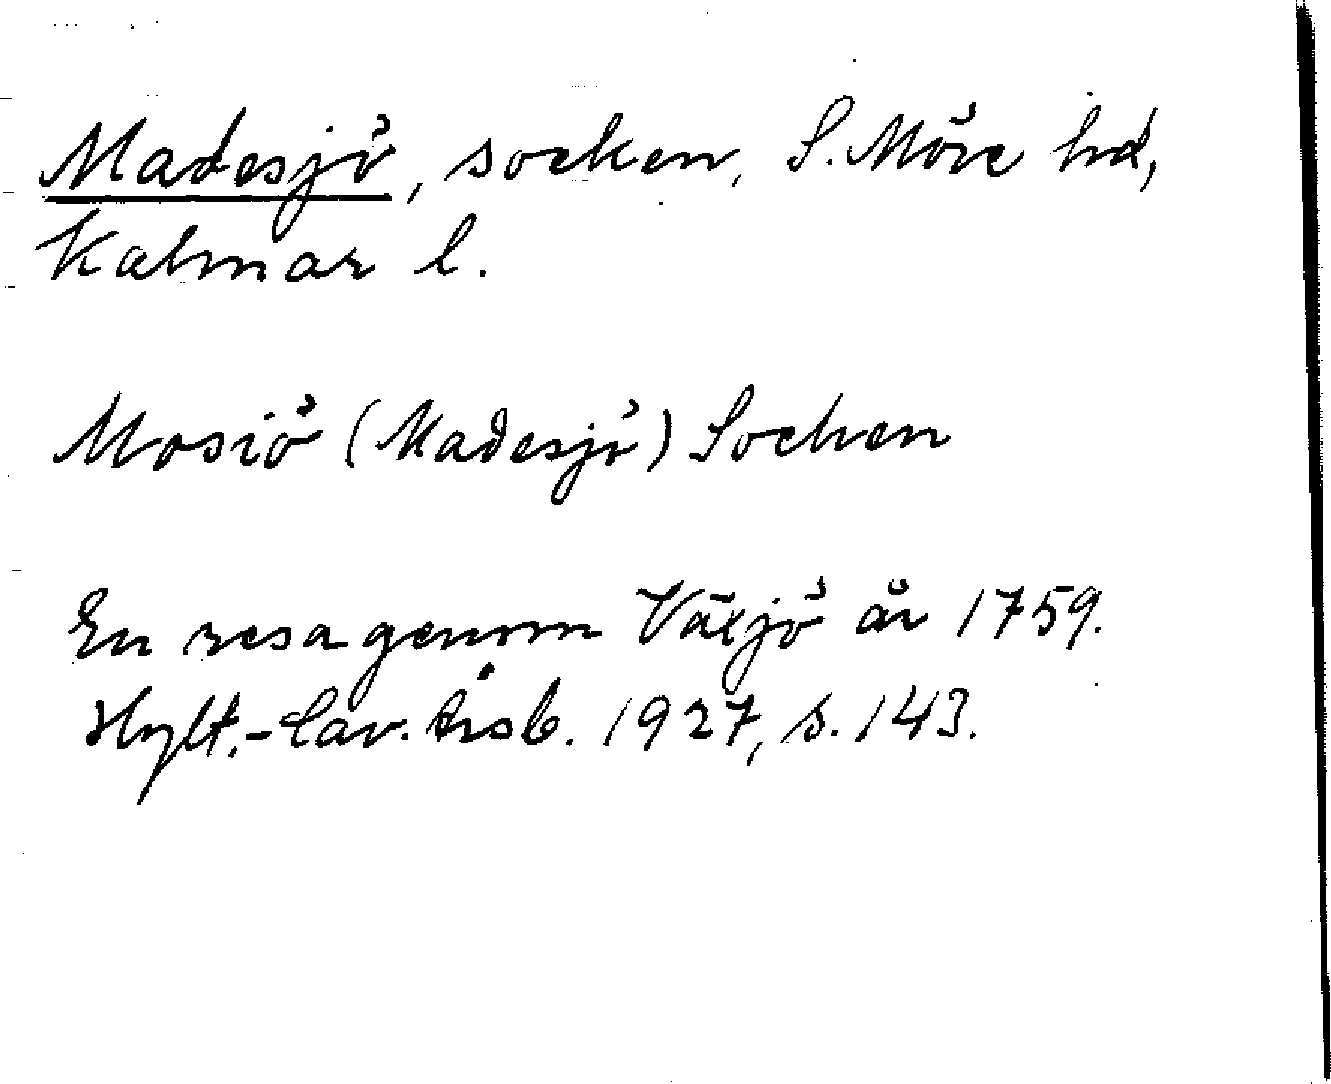 Madesjö, socken, S. Möre hd,
Kalmar l.
Mosiö (Madesjö) Sochen
En resa genom Växjö år 1759.
Hylt.-Cav. Årsb. 1927, s. 143.